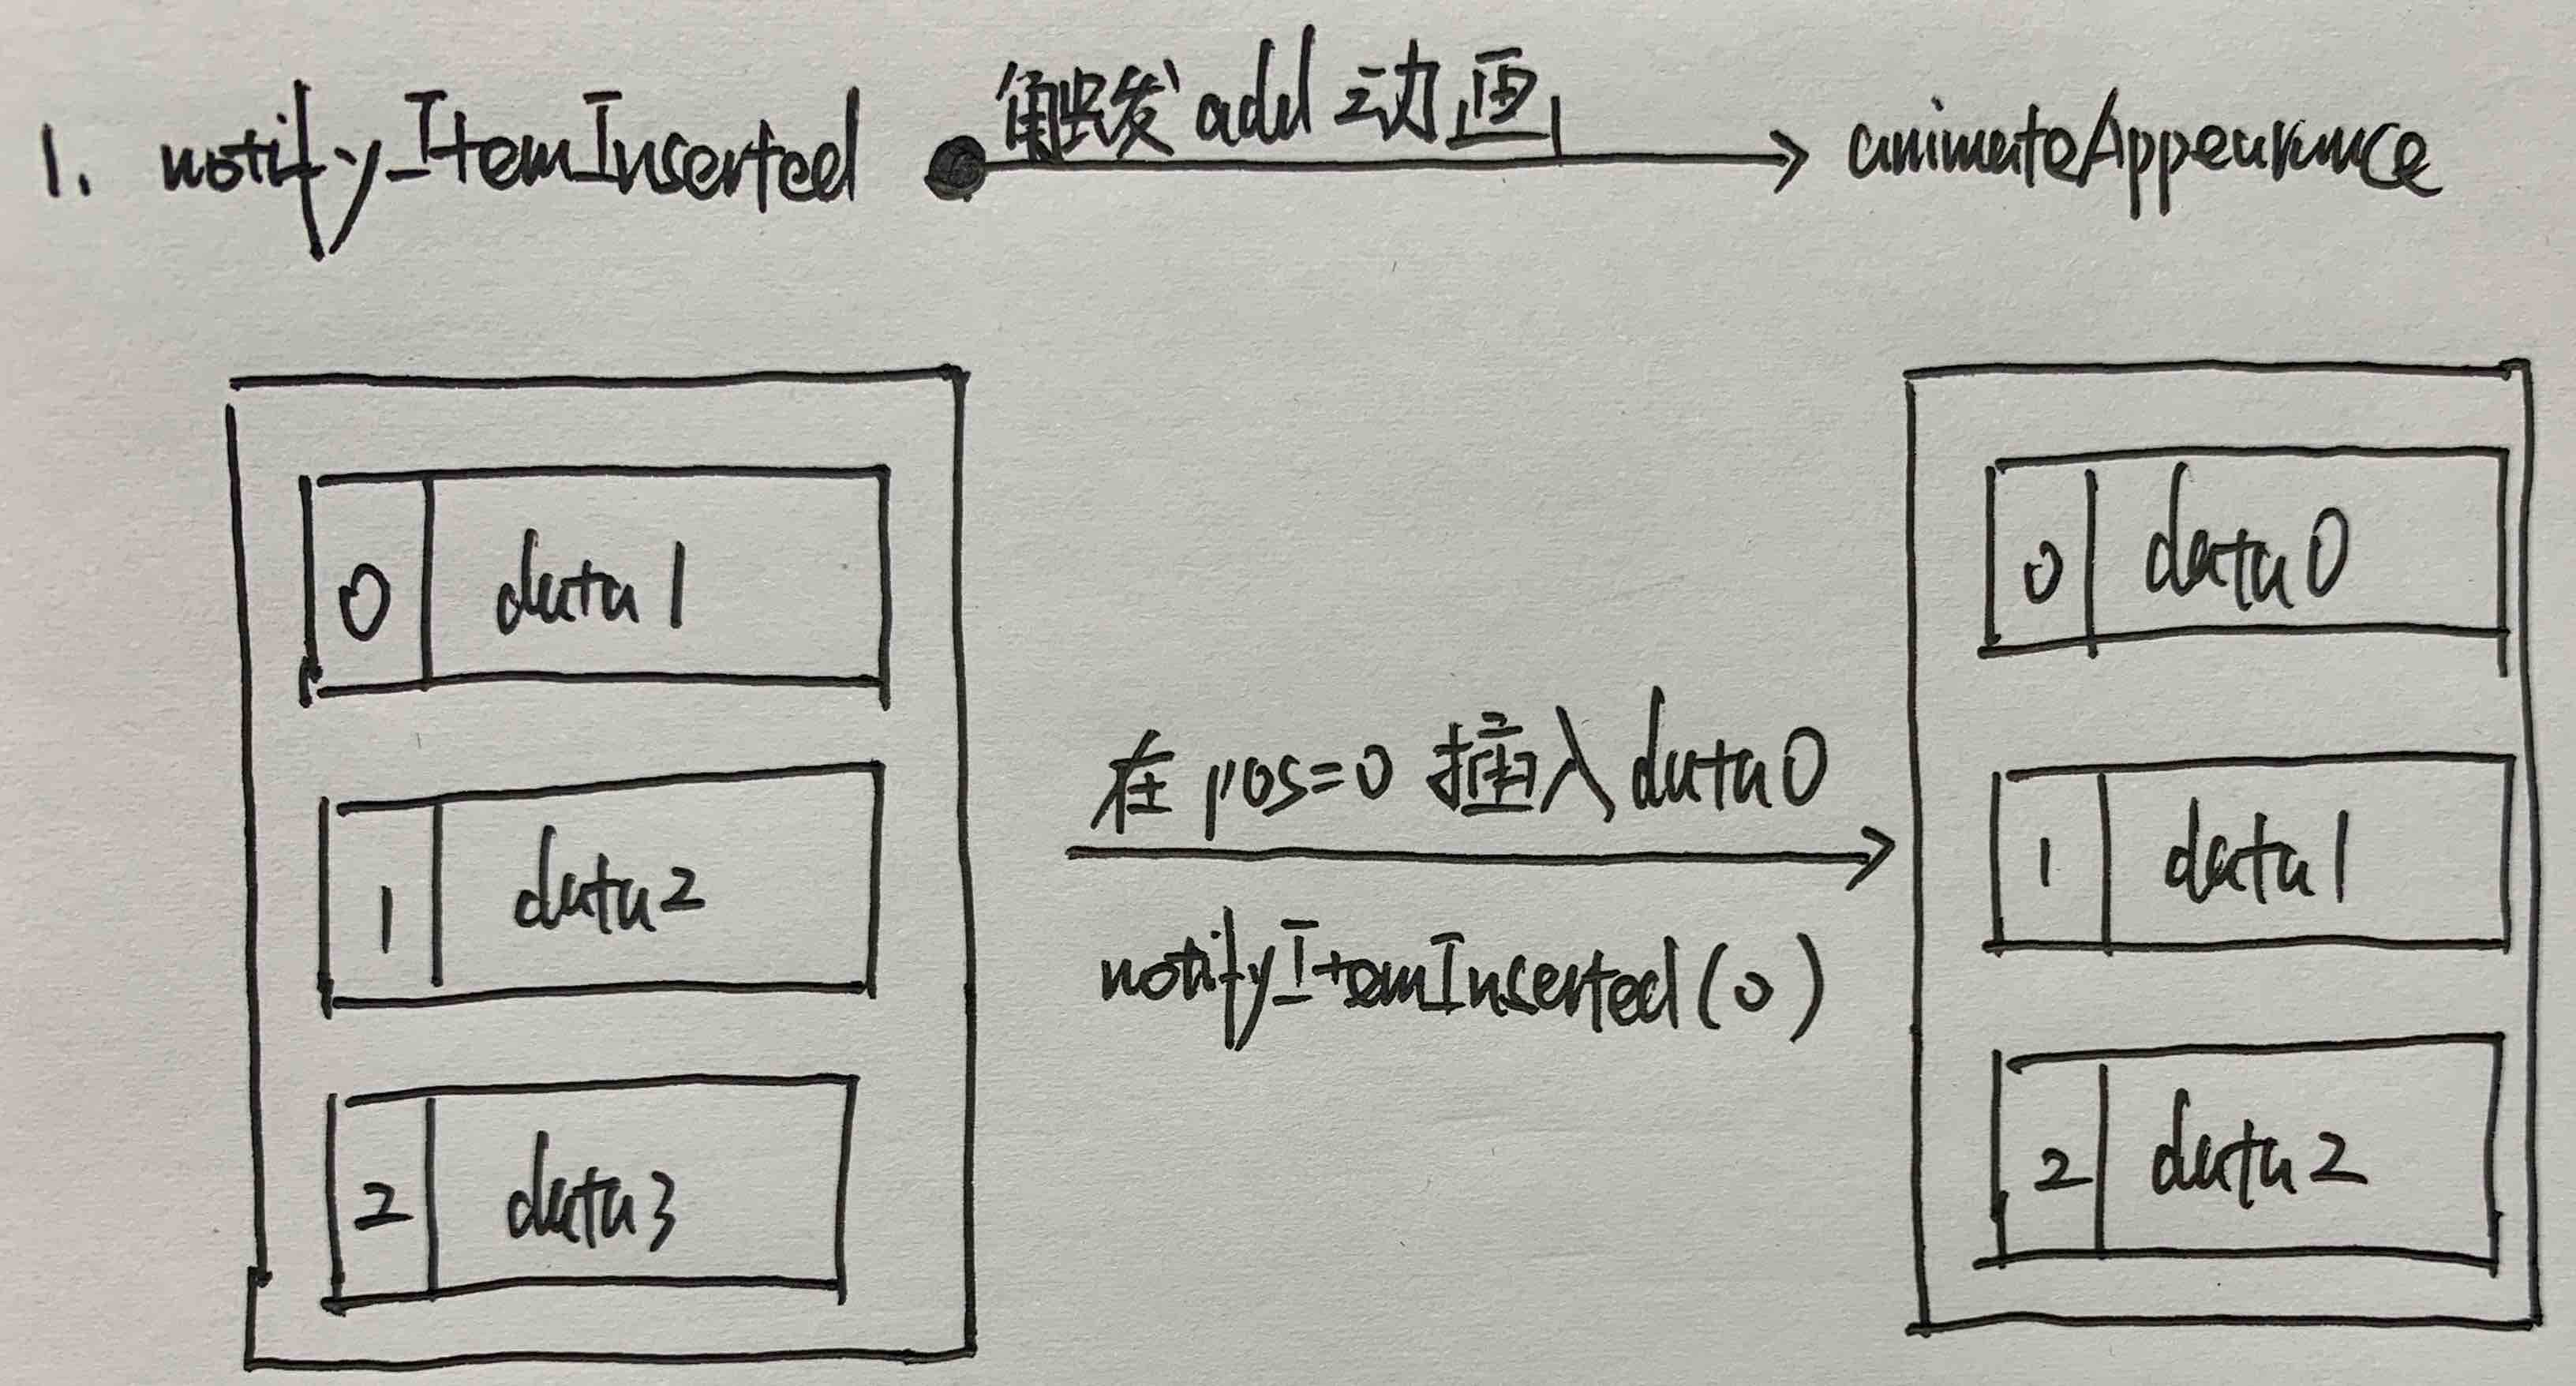 1. notifyItemInserted 触发add动画 animateAppearance
0 data1
1 data2
2 data3
在pos=0插入data0
notifyItemInserted(0)
0 data0
1 data1
2 data2